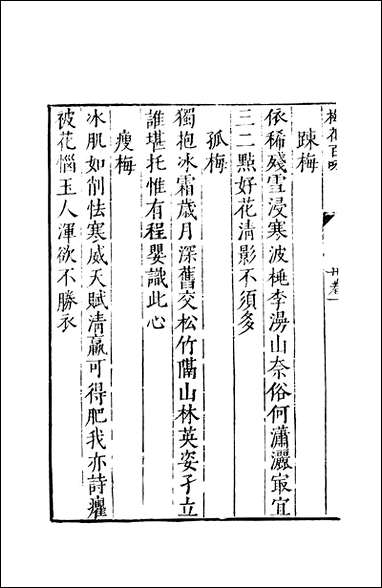 梅花百咏
踈梅
依稀殘雪浸寒波桃李漫山奈俗何瀟灑冣宜
三二點好花清影不須多
孤梅
獨抱冰霜歲月深舊交松竹隔山林英姿孑立
誰堪托惟有程嬰識此心
瘦梅
冰肌如削怯寒威天賦清羸可得肥我亦詩癯
被花惱玉人渾欲不勝衣